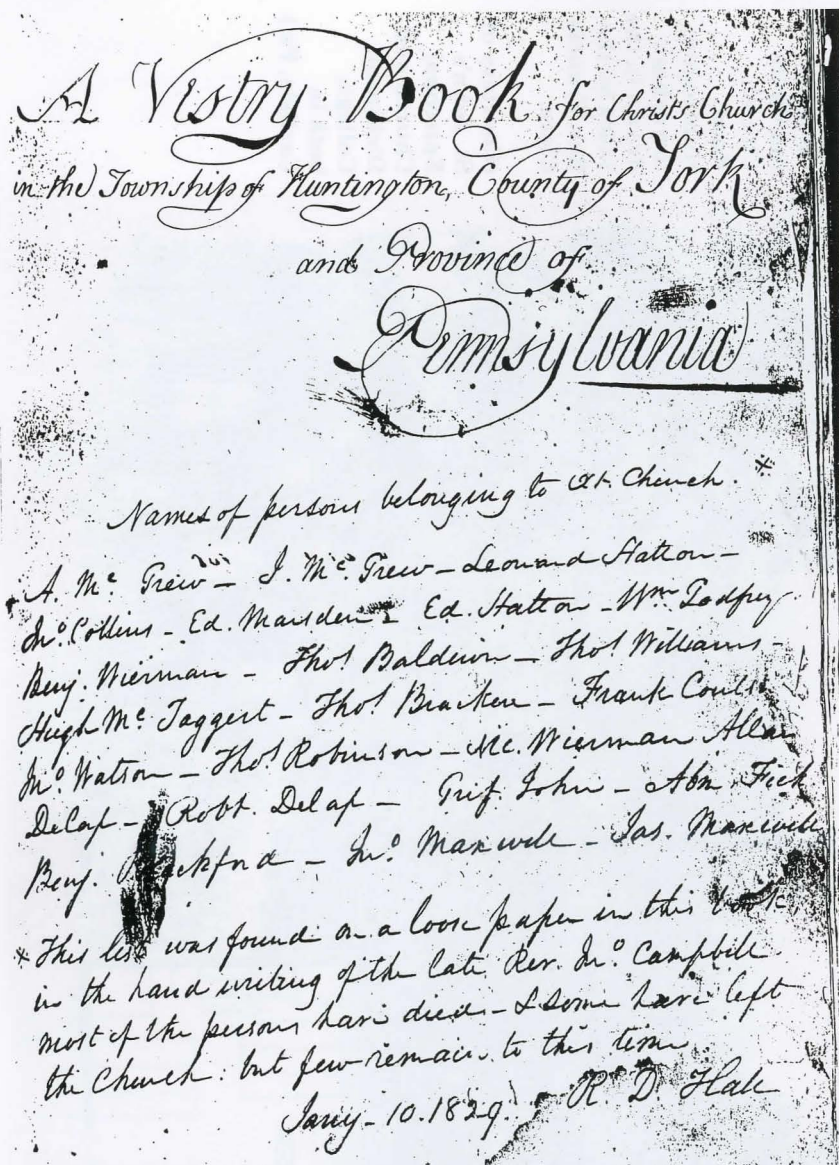 A Vestry Book for Christ's Church
in the Township of Huntington, County of York
and Province of
Pennsylvania
Names of persons belonging to Xt. Church. *
A. Mc Grew – J. Mc. Grew – Leonard Hatton –
Jno. Collins – Ed. Marsden – Ed. Hatton – Wm. Godfrey
Benj. Wierman – Thos Baldwin – Thos Williams –
Hugh Mc Taggert – Thos Bracken – Frank
Jno. Watson – Thos Robinson – Nic. Wierman
DeLap – Robt. DeLap – Grif. John – Abm.
Benj. – Jno. Maxwell – Jas. Maxwell
* This list was found on a loose paper in this book,
in the hand writing of the late Rev. Jno. Campbell
most of the persons have died – & some have left
the Church: but few remain to this time
Jany – 10. 1829. R. D. Hall